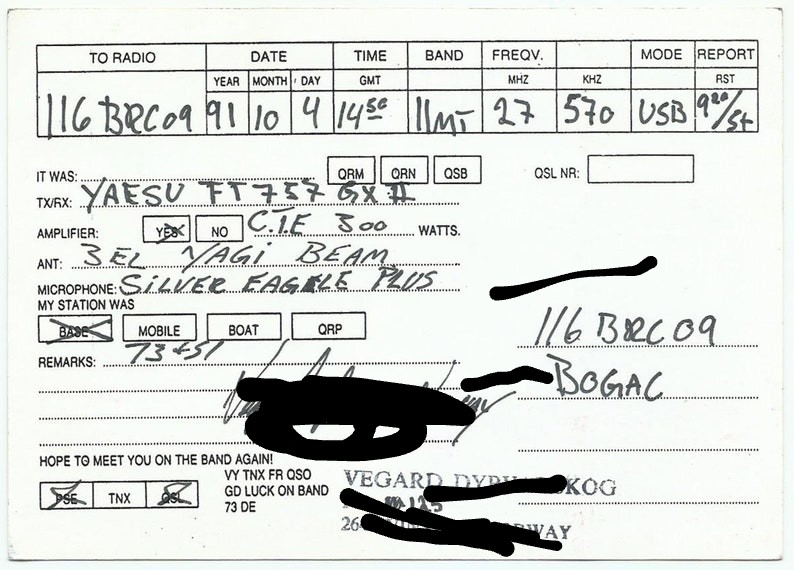 TO RADIO DATE TIME BAND FREQV. MODE REPORT
YEAR MONTH DAY GMT MHZ KHZ RST
116 BRC09 91 10 4 14 50 11MT 27 570 USB
IT WAS: QRM QRN QSB QSL NR:
TX/RX: YAESU FT 757 GX II
AMPLIFIER: YES NO C.T.E 300 WATTS.
ANT: 3EL YAGI BEAM
MICROPHONE: SILVER EAGELE PLUS
MY STATION WAS
BASE MOBILE BOAT QRP
116 BRC09
REMARKS: 73+51
BOGAC
HOPE TO MEET YOU ON THE BAND AGAIN!
PSE TNX QSL
VY TNX FR QSO
GD LUCK ON BAND
73 DE
VEGARD
KOG
26